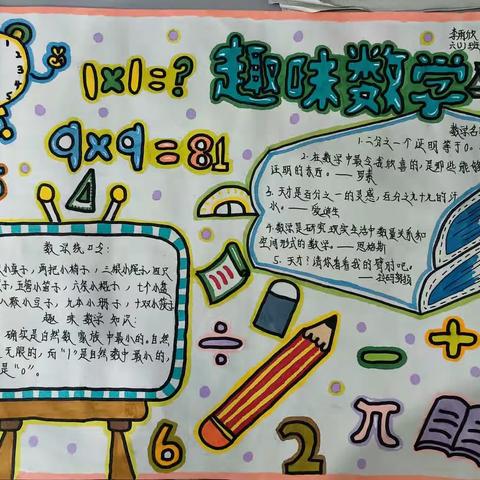 李雨欣
六(1)班
1×1=?
趣味数学
9×9=81
数学名
1.二分之一个证明等于0。
2.在数学中最令我欣喜的,是那些能够
证明的东西。——罗素
3.天才是百分之一的灵感,百分之九十九的汗
水。——爱迪生
4.数学是研究现实生活中数量关系和
空间形式的数学。——恩格斯
5.天才!请你看看我的臂对吧。
数学绕口令:
小桌子,两把小椅子,三根小绳子,四只
子,五管小笛子,六条小裙子,七个小盘
八颗小豆子,九本小册子,十双小筷子
趣味数学知识:
确实是自然数家族中最小的。自然
无限的,而"1"是自然数中最小的,
是"0"。
÷
-
+
6
2
π